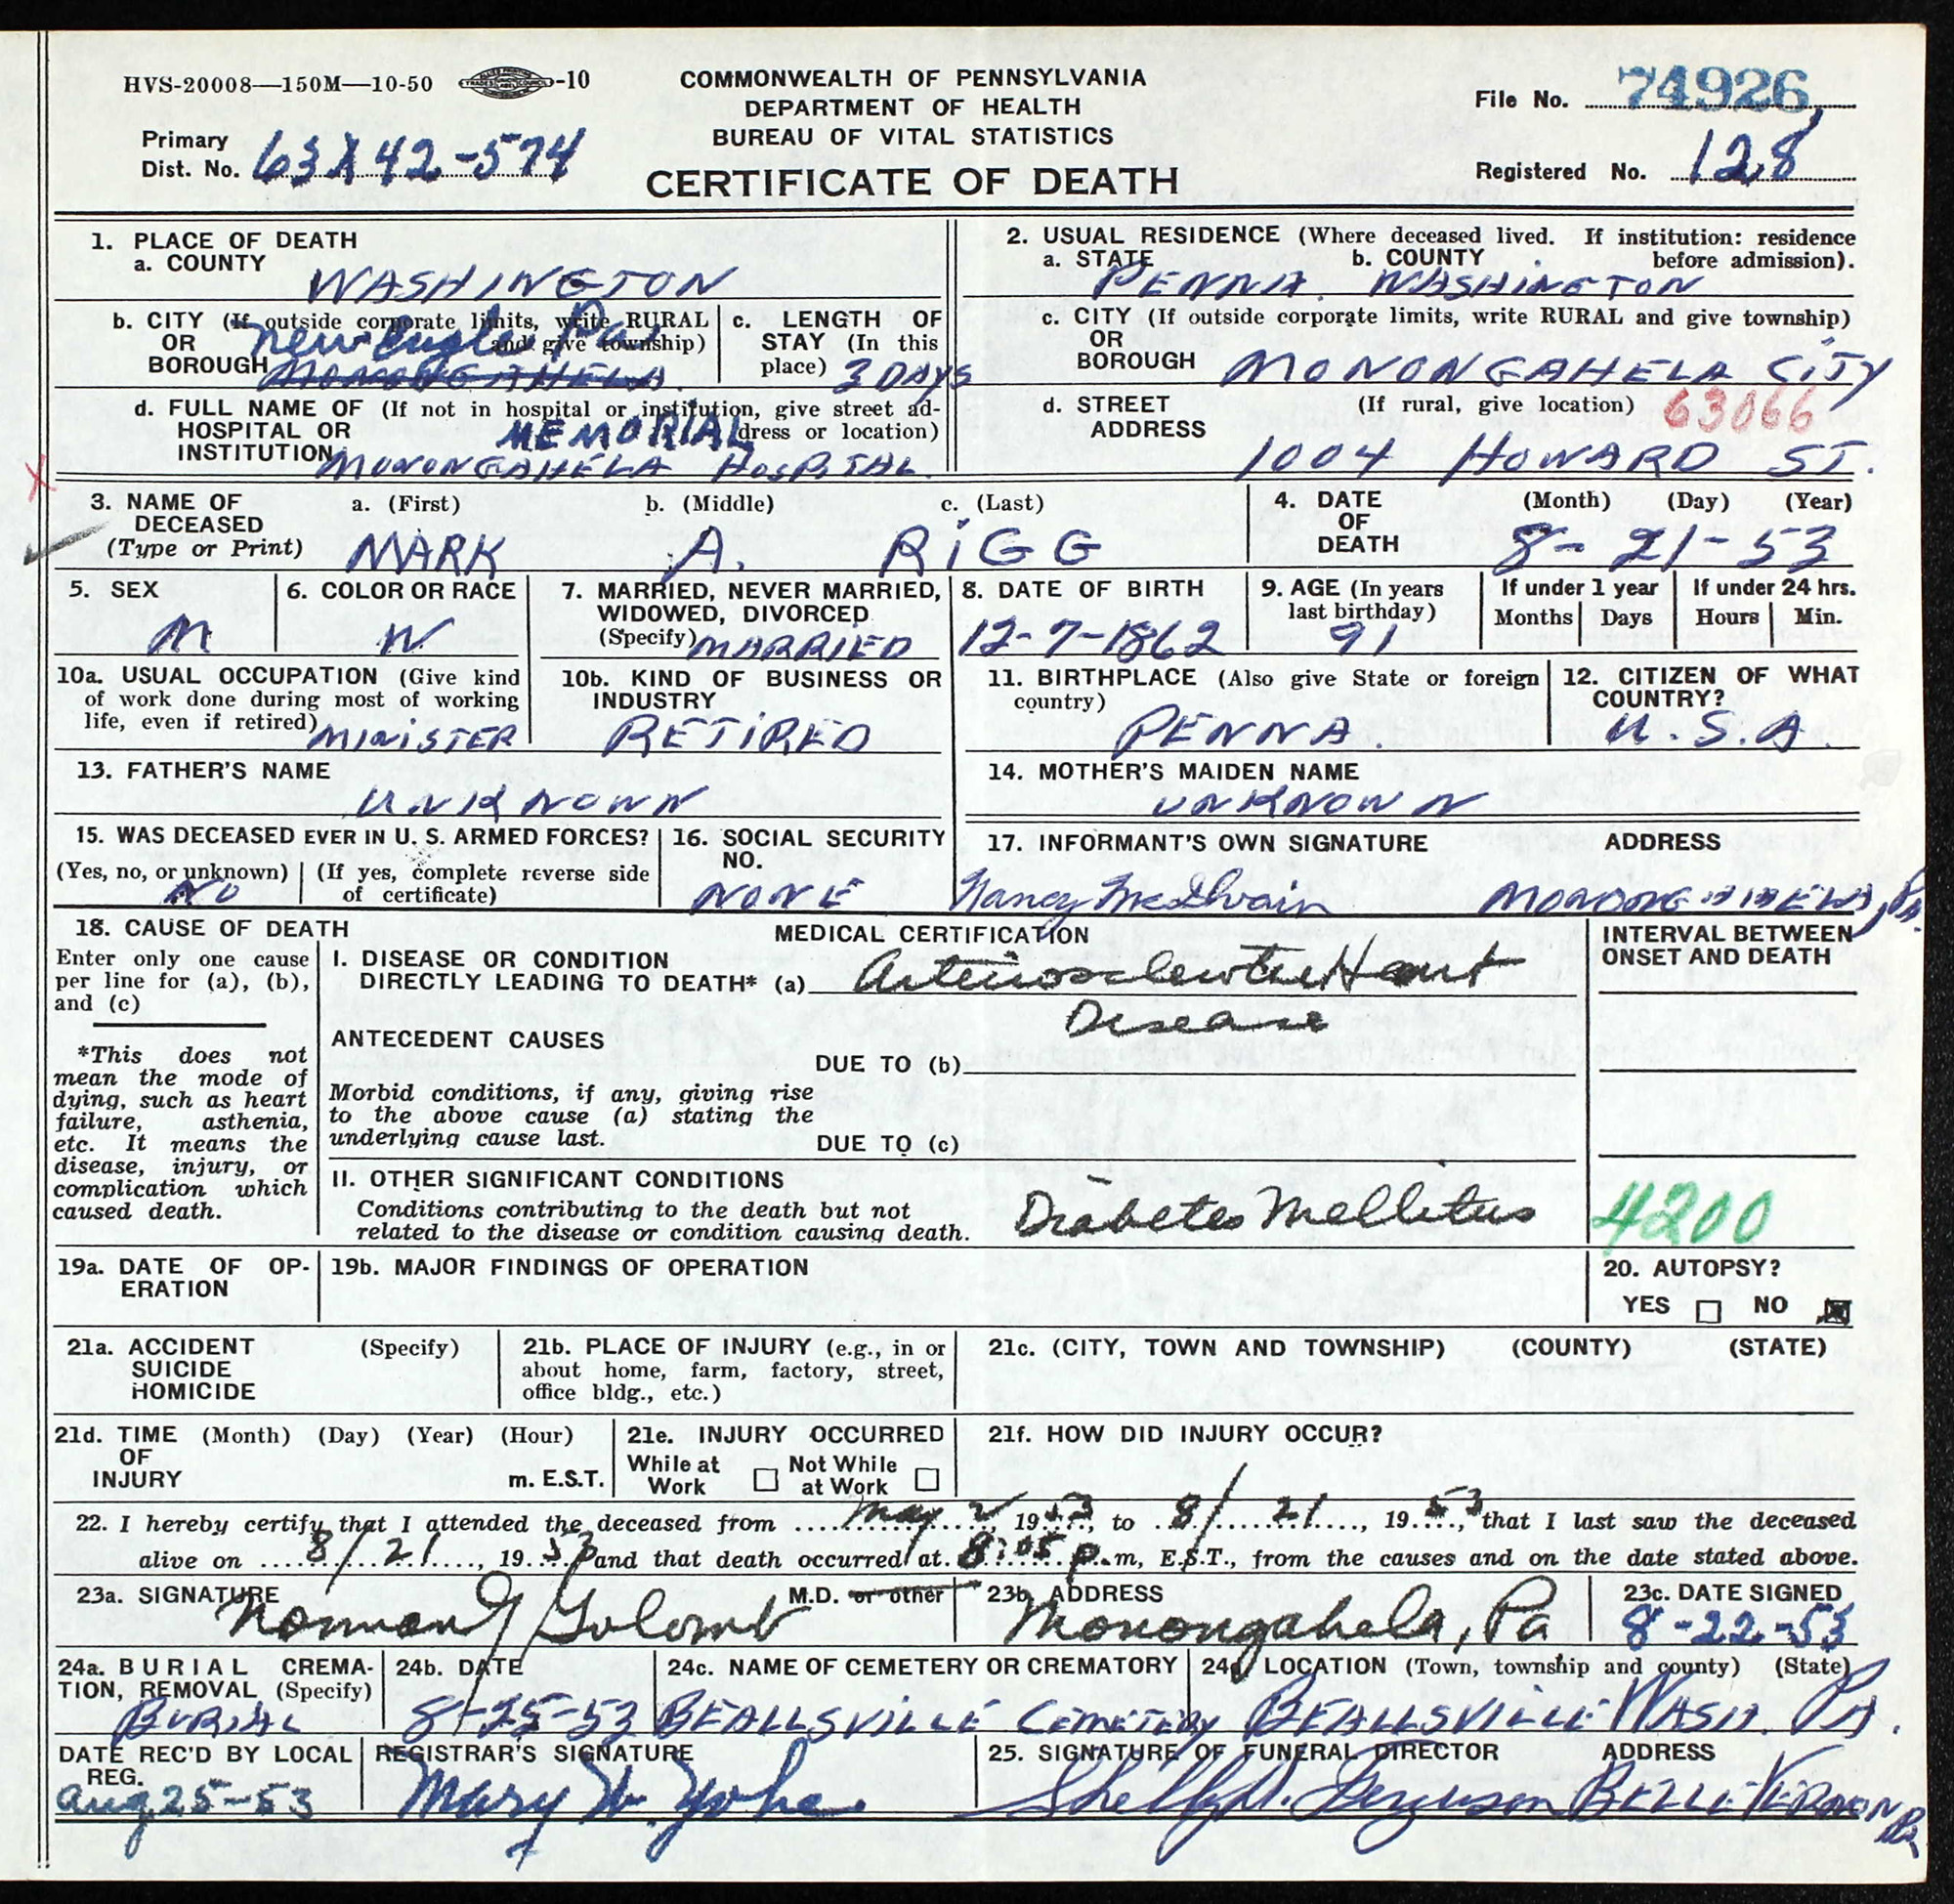 HVS-20008—150M—10-50 -10
COMMONWEALTH OF PENNSYLVANIA
DEPARTMENT OF HEALTH
BUREAU OF VITAL STATISTICS
CERTIFICATE OF DEATH
File No. 74926
Primary
Dist. No. 63X42-574
Registered No. 128
1. PLACE OF DEATH
a. COUNTY
WASHINGTON
b. CITY (If outside corporate limits, write RURAL
OR and give township)
BOROUGH
new Eagle Pa
MONONGAHELA
c. LENGTH OF
STAY (In this
place) 3 DAYS
d. FULL NAME OF (If not in hospital or institution, give street ad-
HOSPITAL OR dress or location)
INSTITUTION
MEMORIAL
MONONGAHELA HOSPITAL
2. USUAL RESIDENCE (Where deceased lived. If institution: residence
a. STATE b. COUNTY before admission).
PENNA. WASHINGTON
c. CITY (If outside corporate limits, write RURAL and give township)
OR
BOROUGH MONONGAHELA CITY
d. STREET (If rural, give location) 63066
ADDRESS
1004 HOWARD ST.
X
3. NAME OF a. (First) b. (Middle) c. (Last)
DECEASED
(Type or Print) MARK A. RIGG
4. DATE (Month) (Day) (Year)
OF
DEATH 8-21-53
5. SEX
M
6. COLOR OR RACE
W
7. MARRIED, NEVER MARRIED,
WIDOWED, DIVORCED
(Specify) MARRIED
8. DATE OF BIRTH
12-7-1862
9. AGE (In years
last birthday)
91
If under 1 year
Months Days
If under 24 hrs.
Hours Min.
10a. USUAL OCCUPATION (Give kind
of work done during most of working
life, even if retired) MINISTER
10b. KIND OF BUSINESS OR
INDUSTRY
RETIRED
11. BIRTHPLACE (Also give State or foreign
country)
PENNA.
12. CITIZEN OF WHAT
COUNTRY?
U.S.A.
13. FATHER'S NAME
UNKNOWN
14. MOTHER'S MAIDEN NAME
UNKNOWN
15. WAS DECEASED EVER IN U. S. ARMED FORCES?
(Yes, no, or unknown) (If yes, complete reverse side
of certificate)
NO
16. SOCIAL SECURITY
NO.
NONE
17. INFORMANT'S OWN SIGNATURE ADDRESS
Nancy McIlvain MONONGAHELA, Pa.
18. CAUSE OF DEATH
Enter only one cause
per line for (a), (b),
and (c)
*This does not
mean the mode of
dying, such as heart
failure, asthenia,
etc. It means the
disease, injury, or
complication which
caused death.
MEDICAL CERTIFICATION
I. DISEASE OR CONDITION
DIRECTLY LEADING TO DEATH* (a) Arteriosclerotic Heart
Disease
ANTECEDENT CAUSES
DUE TO (b)
Morbid conditions, if any, giving rise
to the above cause (a) stating the
underlying cause last.
DUE TO (c)
II. OTHER SIGNIFICANT CONDITIONS
Conditions contributing to the death but not
related to the disease or condition causing death.
Diabetes Mellitus
INTERVAL BETWEEN
ONSET AND DEATH
4200
19a. DATE OF OP-
ERATION
19b. MAJOR FINDINGS OF OPERATION
20. AUTOPSY?
YES NO
21a. ACCIDENT (Specify)
SUICIDE
HOMICIDE
21b. PLACE OF INJURY (e.g., in or
about home, farm, factory, street,
office bldg., etc.)
21c. (CITY, TOWN AND TOWNSHIP) (COUNTY) (STATE)
21d. TIME (Month) (Day) (Year) (Hour)
OF
INJURY m. E.S.T.
21e. INJURY OCCURRED
While at Not While
Work at Work
21f. HOW DID INJURY OCCUR?
22. I hereby certify that I attended the deceased from May 2, 1953, to 8/21, 1953, that I last saw the deceased
alive on 8/21, 1953 and that death occurred at 8:05 p.m, E.S.T., from the causes and on the date stated above.
23a. SIGNATURE M.D. or other
Norman J Golomb
23b. ADDRESS
Monongahela, Pa
23c. DATE SIGNED
8-22-53
24a. BURIAL CREMA-
TION, REMOVAL (Specify)
BURIAL
24b. DATE
8-25-53
24c. NAME OF CEMETERY OR CREMATORY
BEALLSVILLE CEMETERY
24d. LOCATION (Town, township and county) (State)
BEALLSVILLE WASH. PA.
DATE REC'D BY LOCAL
REG.
Aug 25-53
REGISTRAR'S SIGNATURE
Mary W. Yohe
25. SIGNATURE OF FUNERAL DIRECTOR ADDRESS
Ferguson BELLE VERNON Pa